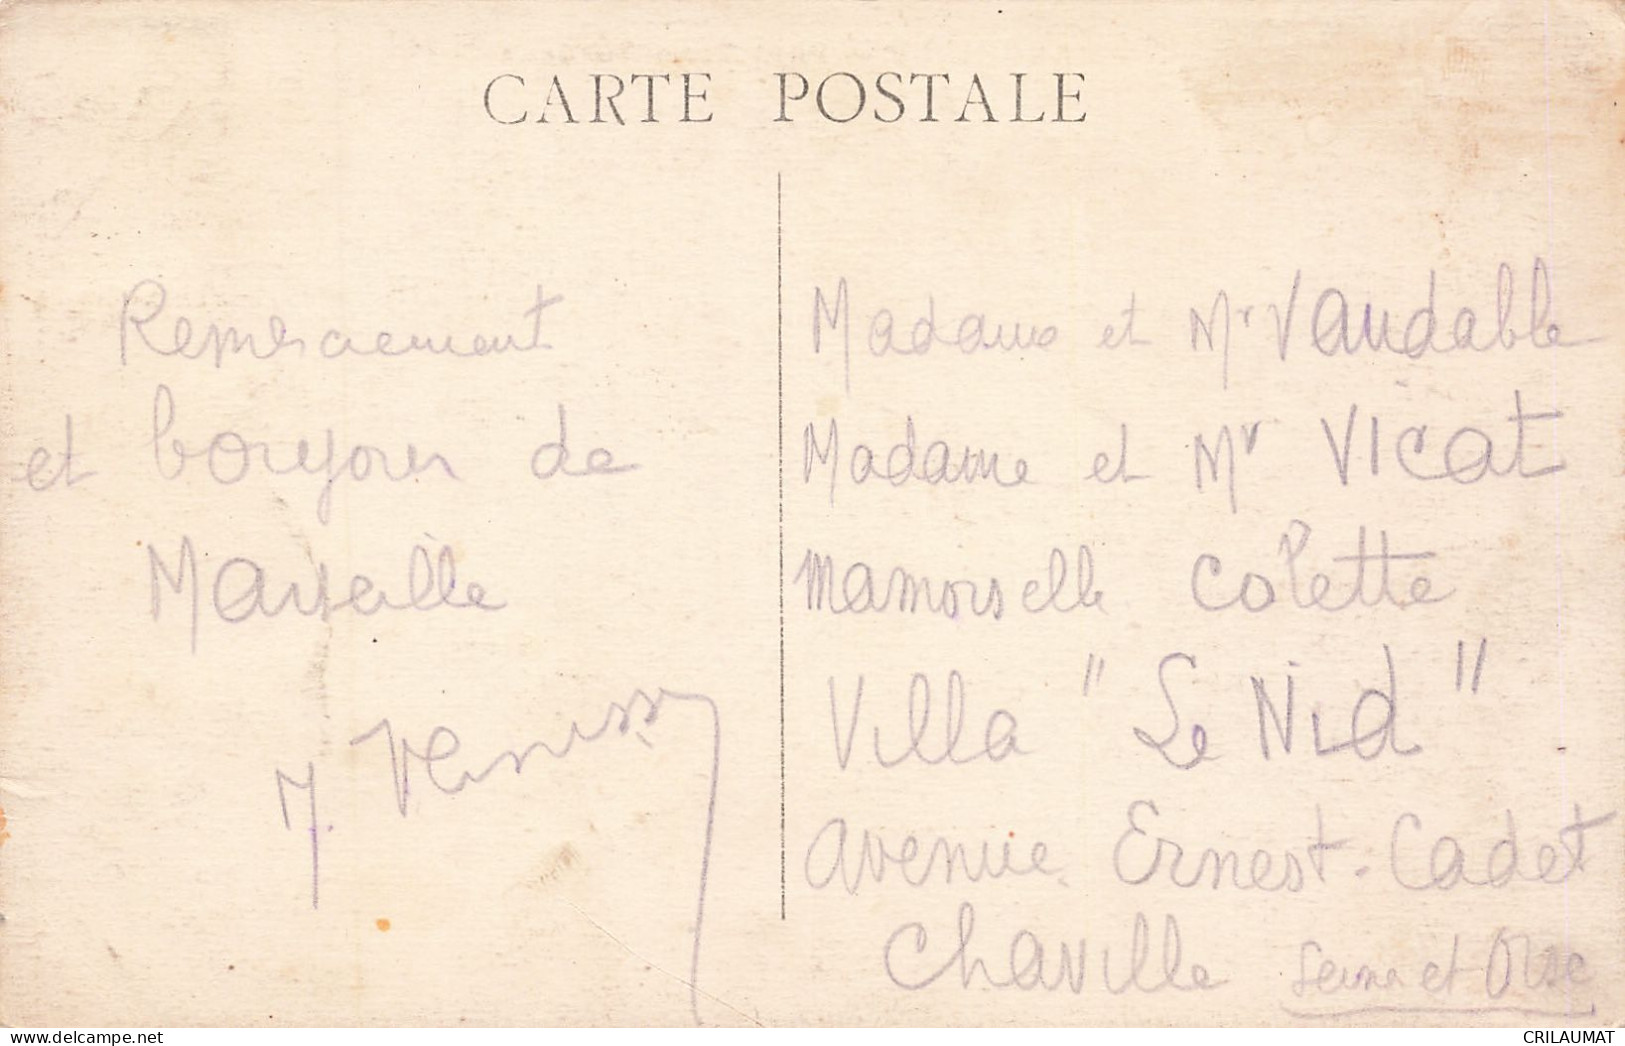 CARTE POSTALE
Remerciement
et bonjour de
Marseille
Madame et Mr Vaudable
Madame et Mr Vicat
Mamoiselle Colette
Villa "Le Nid"
avenue Ernest-Cadet
Chaville Seine et Oise
CRILAUMAT